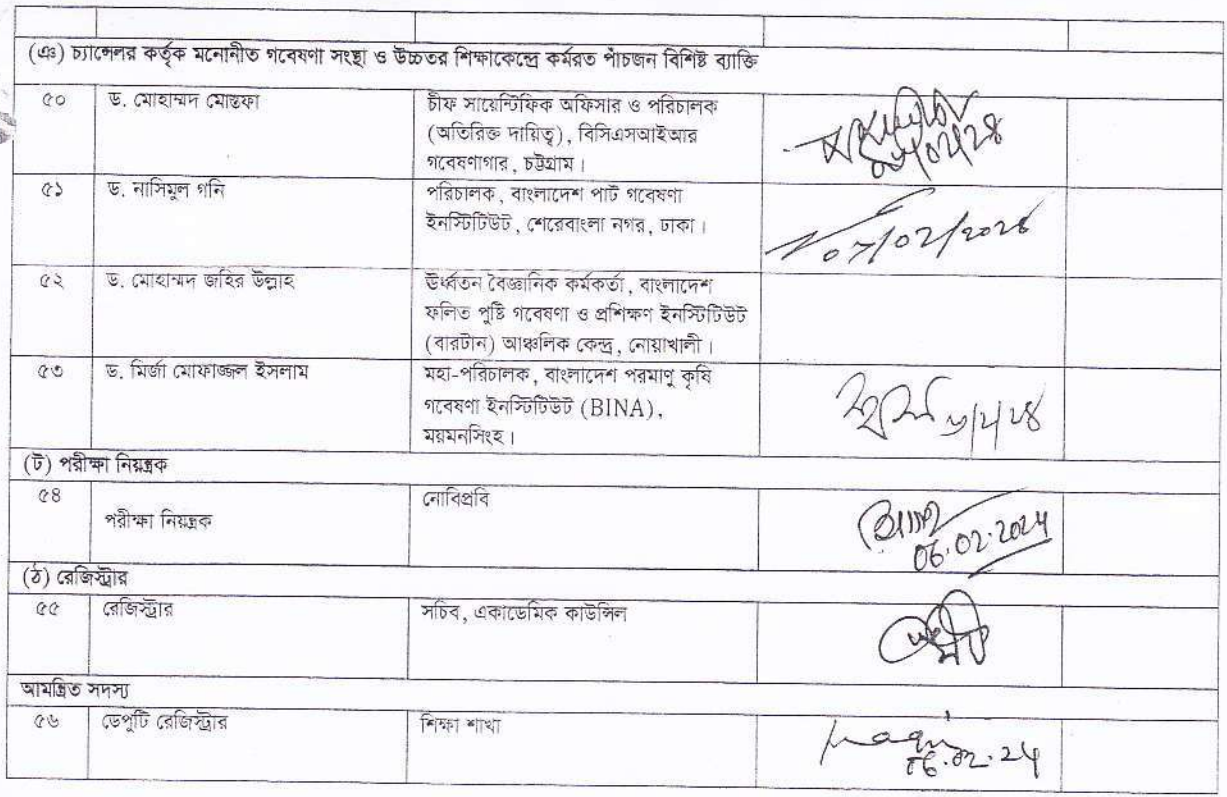 (ঞ) চ্যান্সেলর কর্তৃক মনোনীত গবেষণা সংস্থা ও উচ্চতর শিক্ষাকেন্দ্রে কর্মরত পাঁচজন বিশিষ্ট ব্যাক্তি
৫০ ড. মোহাম্মদ মোস্তফা চীফ সায়েন্টিফিক অফিসার ও পরিচালক
(অতিরিক্ত দায়িত্ব), বিসিএসআইআর
গবেষণাগার, চট্টগ্রাম।
৫১ ড. নাসিমুল গনি পরিচালক, বাংলাদেশ পাট গবেষণা
ইনস্টিটিউট, শেরেবাংলা নগর, ঢাকা।
07/02/2024
৫২ ড. মোহাম্মদ জহির উল্লাহ উর্ধ্বতন বৈজ্ঞানিক কর্মকর্তা, বাংলাদেশ
ফলিত পুষ্টি গবেষণা ও প্রশিক্ষণ ইনস্টিটিউট
(বারটান) আঞ্চলিক কেন্দ্র, নোয়াখালী।
৫৩ ড. মির্জা মোফাজ্জল ইসলাম মহা-পরিচালক, বাংলাদেশ পরমাণু কৃষি
গবেষণা ইনস্টিটিউট (BINA),
ময়মনসিংহ।
(ট) পরীক্ষা নিয়ন্ত্রক
৫৪ পরীক্ষা নিয়ন্ত্রক নোবিপ্রবি
06.02.2024
(ঠ) রেজিস্ট্রার
৫৫ রেজিস্ট্রার সচিব, একাডেমিক কাউন্সিল
আমন্ত্রিত সদস্য
৫৬ ডেপুটি রেজিস্ট্রার শিক্ষা শাখা
06.02.24